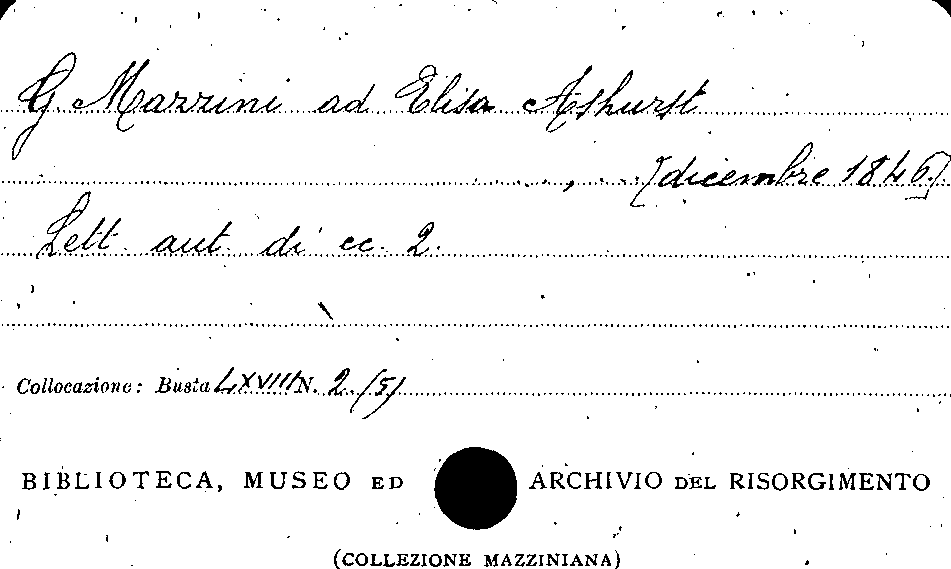 G. Mazzini ad Elisa Ashurst
..., ... [dicembre 1846]
Lett. aut. di cc. 2.
Collocazione: Busta LXVIII N. 2. (5)
BIBLIOTECA, MUSEO ED ARCHIVIO DEL RISORGIMENTO
(COLLEZIONE MAZZINIANA)